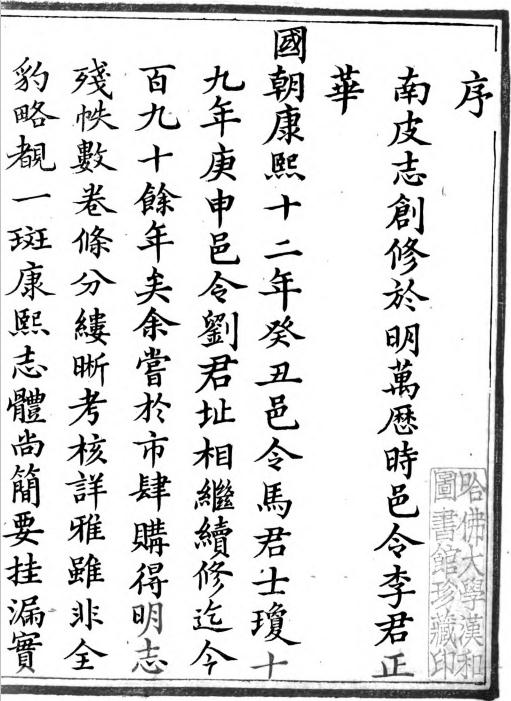 序
南皮志創修於明萬厯時邑令李君正
華
國朝康熙十二年癸丑邑令馬君士瓊十
九年庚申邑令劉君址相繼續修迄今
百九十餘年矣余嘗於市肆購得明志
殘帙數卷條分縷晰考核詳雅雖非全
豹略覩一斑康熙志體尚簡要挂漏實
哈佛大學漢和
圖書館珍藏印